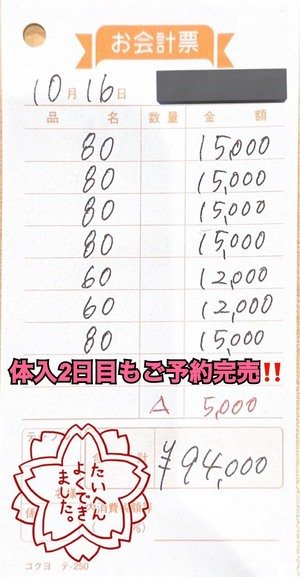 お会計票
10月16日
品名 数量 金額
80 15,000
80 15,000
80 15,000
80 15,000
60 12,000
60 12,000
80 15,000
体入2日目もご予約完売!!
△ 5,000
計 ¥94,000
たいへん
よくでき
ました。
コクヨ テ-250